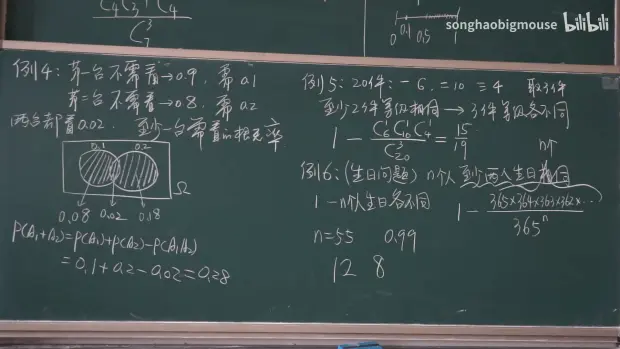 C₄C₃+C₄
C₇³
0 0.1 0.5 1
songhaobigmouse bilibili
例4：第一台不需看→0.9，需0.1
第二台不需看→0.8，需0.2
两台都看0.02． 至少一台需看的概率
0.1 0.2
Ω
0.08 0.02 0.18
P(A₁+A₂)=P(A₁)+P(A₂)-P(A₁A₂)
=0.1+0.2-0.02=0.28
例5：20件：一6，二10 三4 取3件
至少2件等级相同→3件等级各不同
1-C₆¹C₁₀¹C₄¹/C₂₀³=15/19
n个
例6：(生日问题) n个人 至少两人生日相同
1-n个人生日各不同 1-365×364×363×362×…/365ⁿ
n=55 0.99
12 8